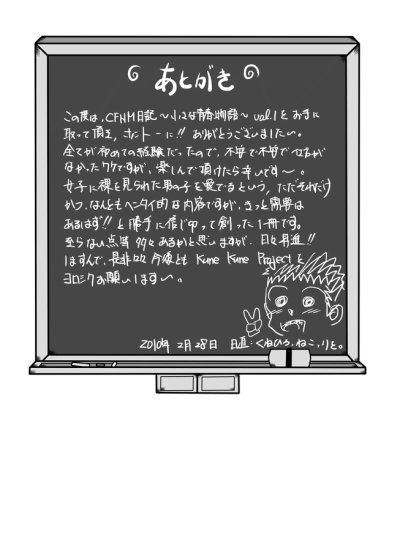 あとがき
この度は、CFNM日記 〜小さな青春物語〜 vol.1をお手に
取って頂き、ホントーに!! ありがとうございました〜。
全てが初めての経験だったので、不安で不安で仕方が
なかったワケですが、楽しんで頂けたら幸いです〜。
女子に裸を見られた男の子を愛でるという、ただそれだけ
かつ、なんともヘンタイ的な内容ですが、きっと需要は
あるはず!! と勝手に信じ切って創った一冊です。
至らない点等 多々あるかと思いますが、日々昇進!!
しますんで、是非 今後とも Kune Kune Project を
ヨロシクお願いします〜。
2010年 2月28日 日直:くねひろ、ねこ、りと。